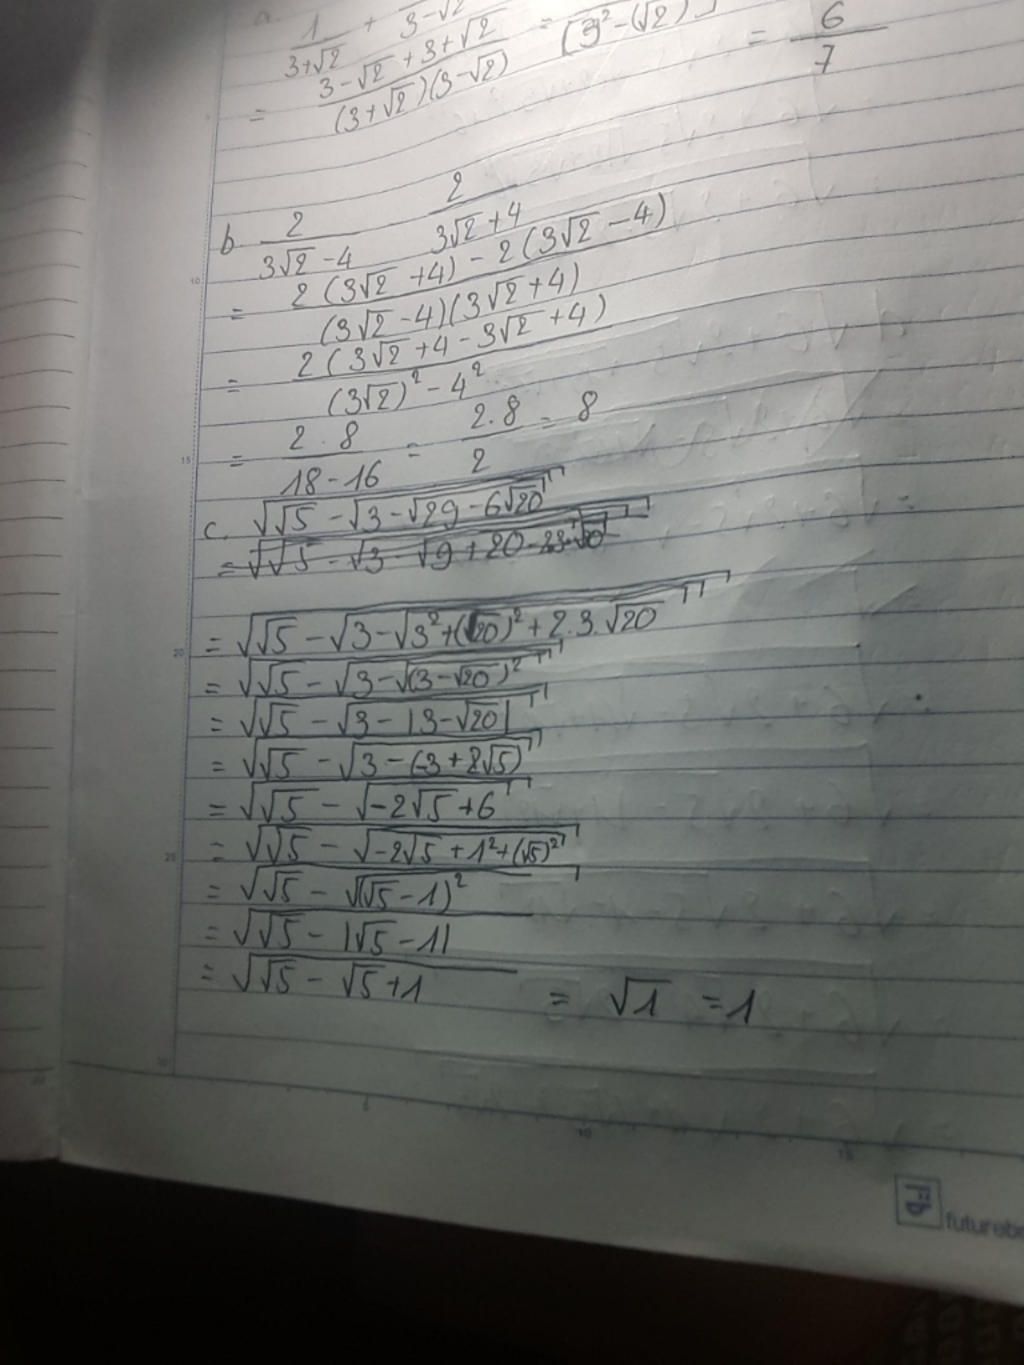 a. 1/(3+√2) + 1/(3-√2)
= (3-√2+3+√2)/((3+√2)(3-√2)) = 6/(3²-(√2)²) = 6/7
b 2/(3√2-4) 2/(3√2+4)
= (2(3√2+4) - 2(3√2-4))/((3√2-4)(3√2+4))
= 2(3√2+4-3√2+4)/((3√2)²-4²)
= (2.8)/(18-16) = (2.8)/2 = 8
c. √(√5-√(3-√(29-6√20)))
= √(√5-√(3-√(9+20-2.3.√20)))
= √(√5-√(3-√(3²+(√20)²+2.3.√20)))
= √(√5-√(3-√((3-√20)²)))
= √(√5-√(3-|3-√20|))
= √(√5-√(3-(-3+2√5)))
= √(√5-√(-2√5+6))
= √(√5-√(-2√5+1²+(√5)²))
= √(√5-√((√5-1)²))
= √(√5-|√5-1|)
= √(√5-√5+1) = √1 = 1
10
15
20
25
30
5
10
15